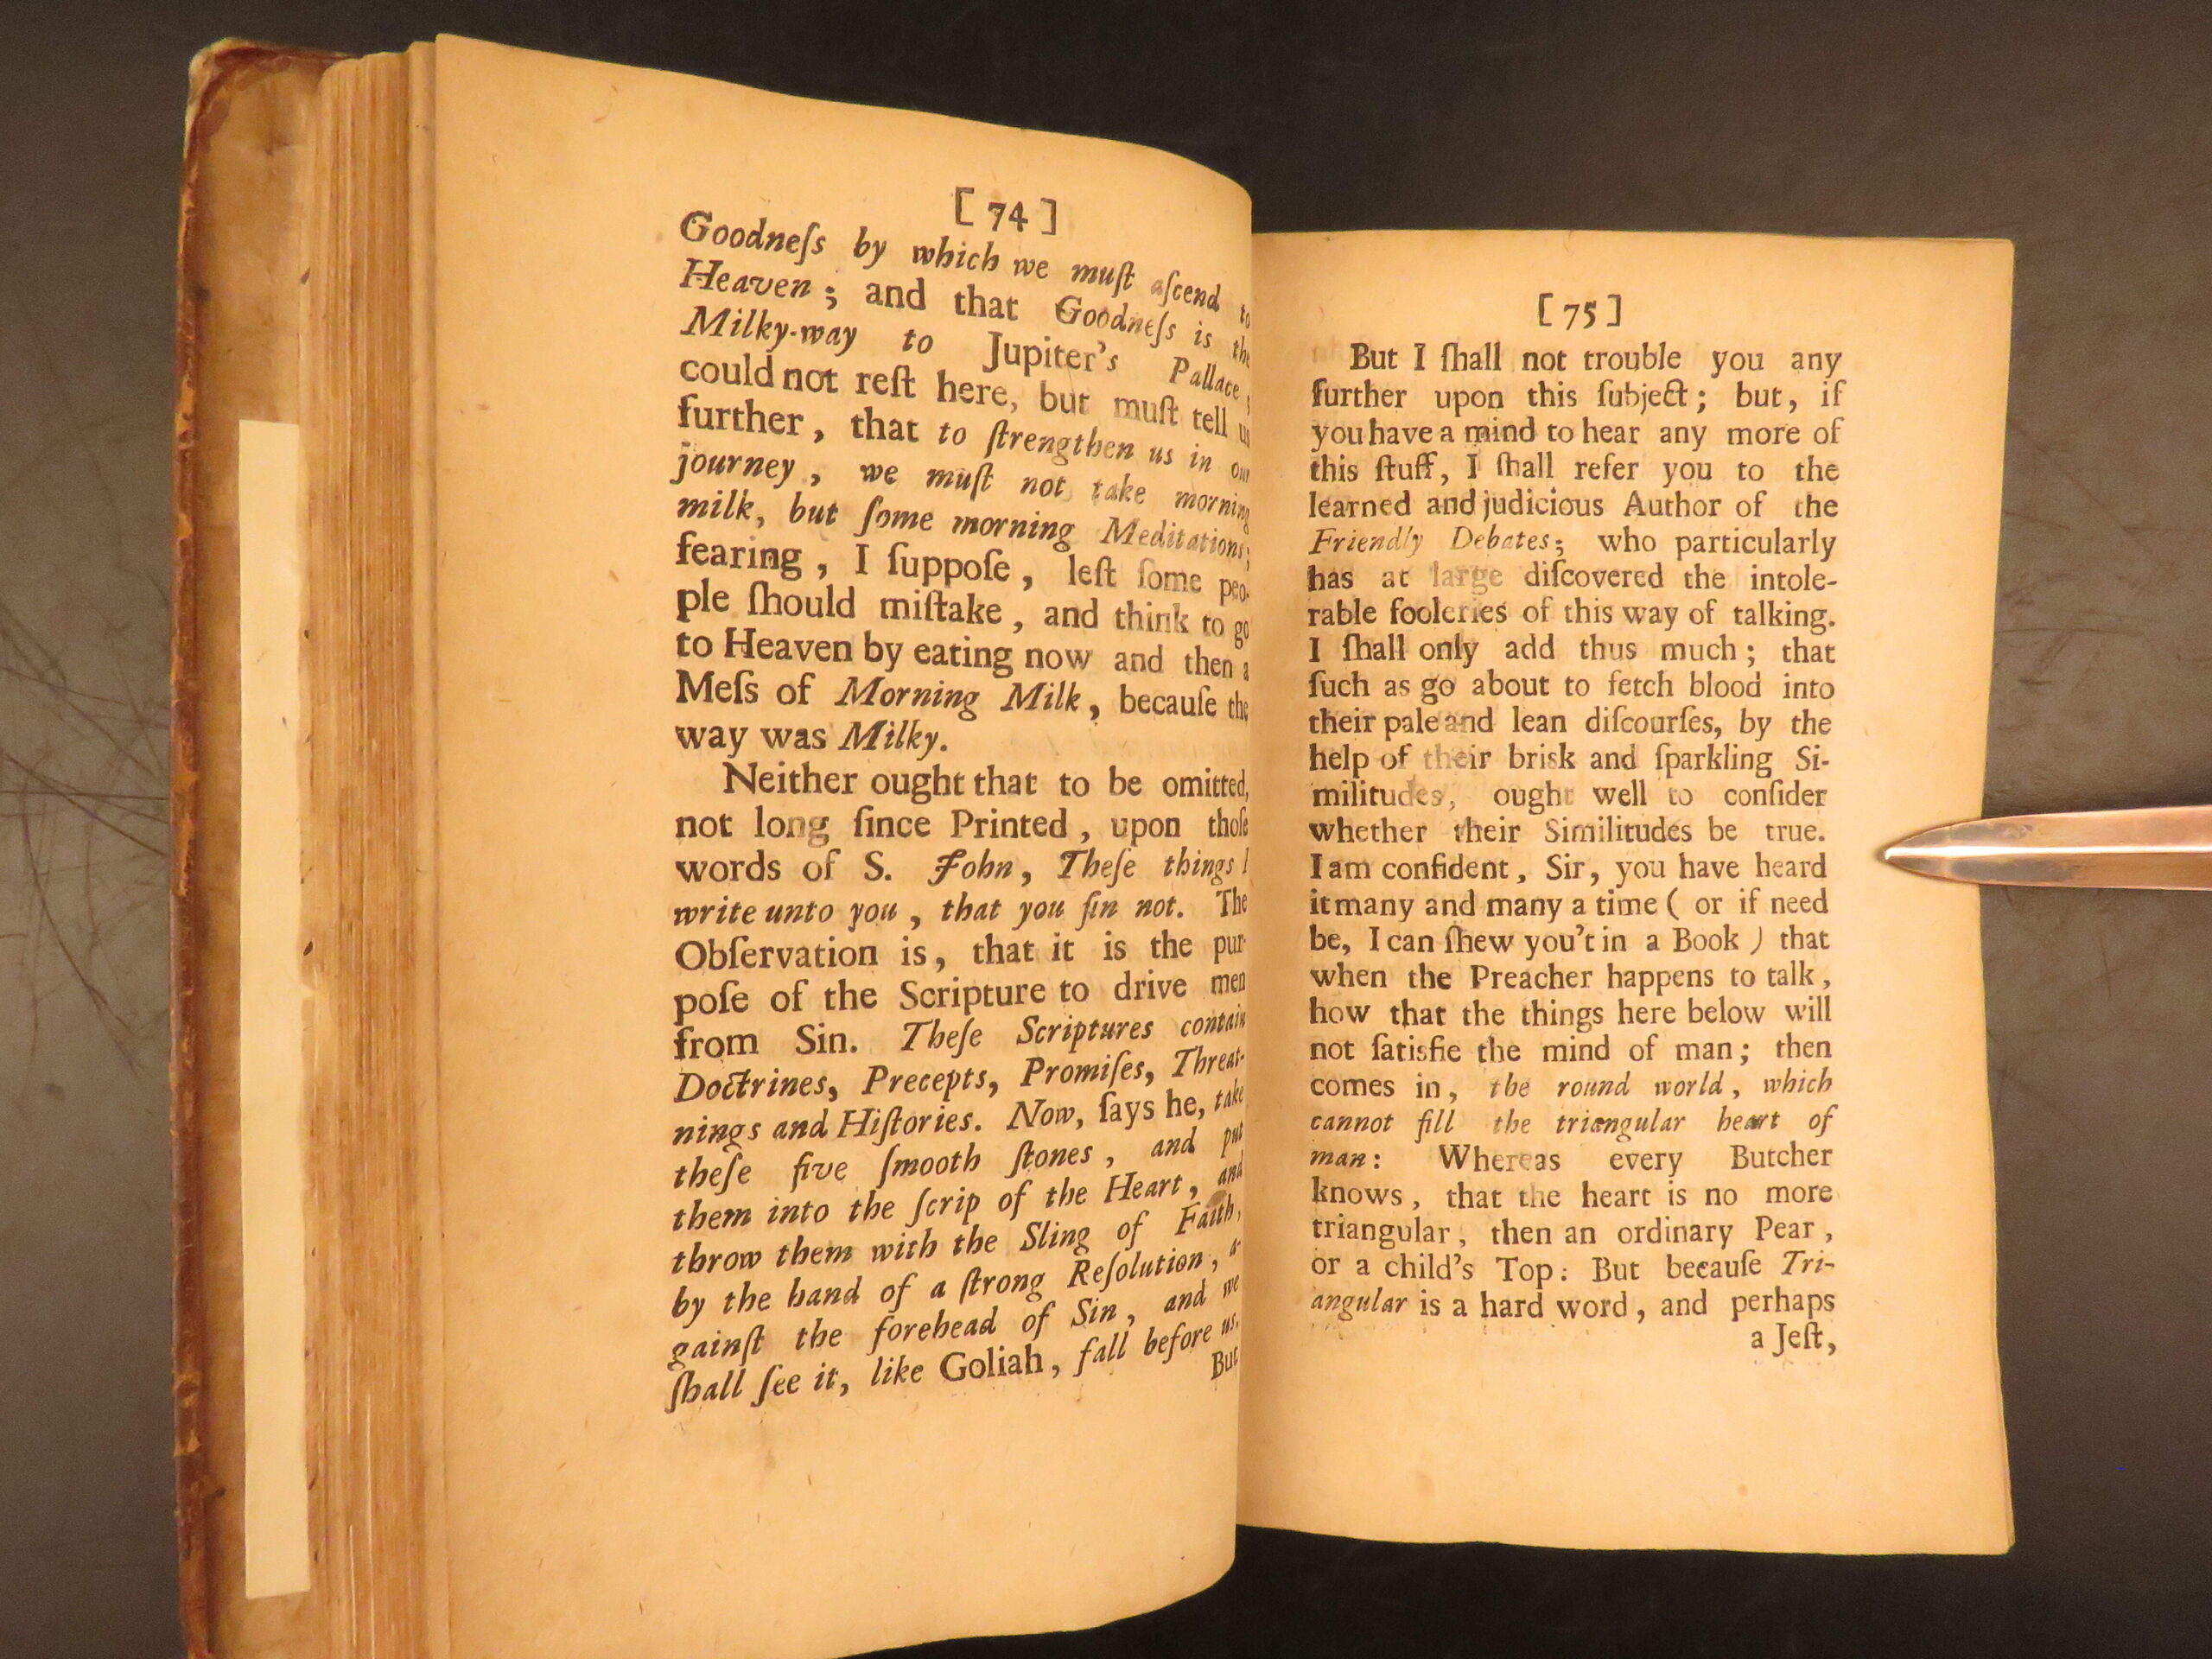 [ 74 ]
Goodneſs by which we muſt aſcend to
Heaven ; and that Goodneſs is the
Milky-way to Jupiter's Pallace ;
could not reſt here, but muſt tell us
further , that to ſtrengthen us in our
journey , we muſt not take morning
milk, but ſome morning Meditations;
fearing , I ſuppoſe , leſt ſome peo-
ple ſhould miſtake , and think to go
to Heaven by eating now and then a
Meſs of Morning Milk , becauſe the
way was Milky.
Neither ought that to be omitted,
not long ſince Printed , upon thoſe
words of S. John , Theſe things I
write unto you , that you ſin not. The
Obſervation is , that it is the pur-
poſe of the Scripture to drive men
from Sin. Theſe Scriptures contain
Doctrines, Precepts, Promiſes, Threat-
nings and Hiſtories. Now, ſays he, take
theſe five ſmooth ſtones , and put
them into the ſcrip of the Heart , and
throw them with the Sling of Faith,
by the hand of a ſtrong Reſolution , a-
gainſt the forehead of Sin , and we
ſhall ſee it, like Goliah , fall before us.
But
[ 75 ]
But I ſhall not trouble you any
further upon this ſubject ; but , if
you have a mind to hear any more of
this ſtuff, I ſhall refer you to the
learned and judicious Author of the
Friendly Debates; who particularly
has at large diſcovered the intole-
rable fooleries of this way of talking.
I ſhall only add thus much ; that
ſuch as go about to fetch blood into
their pale and lean diſcourſes, by the
help of their brisk and ſparkling Si-
militudes, ought well to conſider
whether their Similitudes be true.
I am confident , Sir , you have heard
it many and many a time ( or if need
be, I can ſhew you't in a Book ) that
when the Preacher happens to talk ,
how that the things here below will
not ſatisfie the mind of man ; then
comes in , the round world , which
cannot fill the triangular heart of
man : Whereas every Butcher
knows , that the heart is no more
triangular , then an ordinary Pear ,
or a child's Top : But becauſe Tri-
angular is a hard word , and perhaps
a Jeſt,